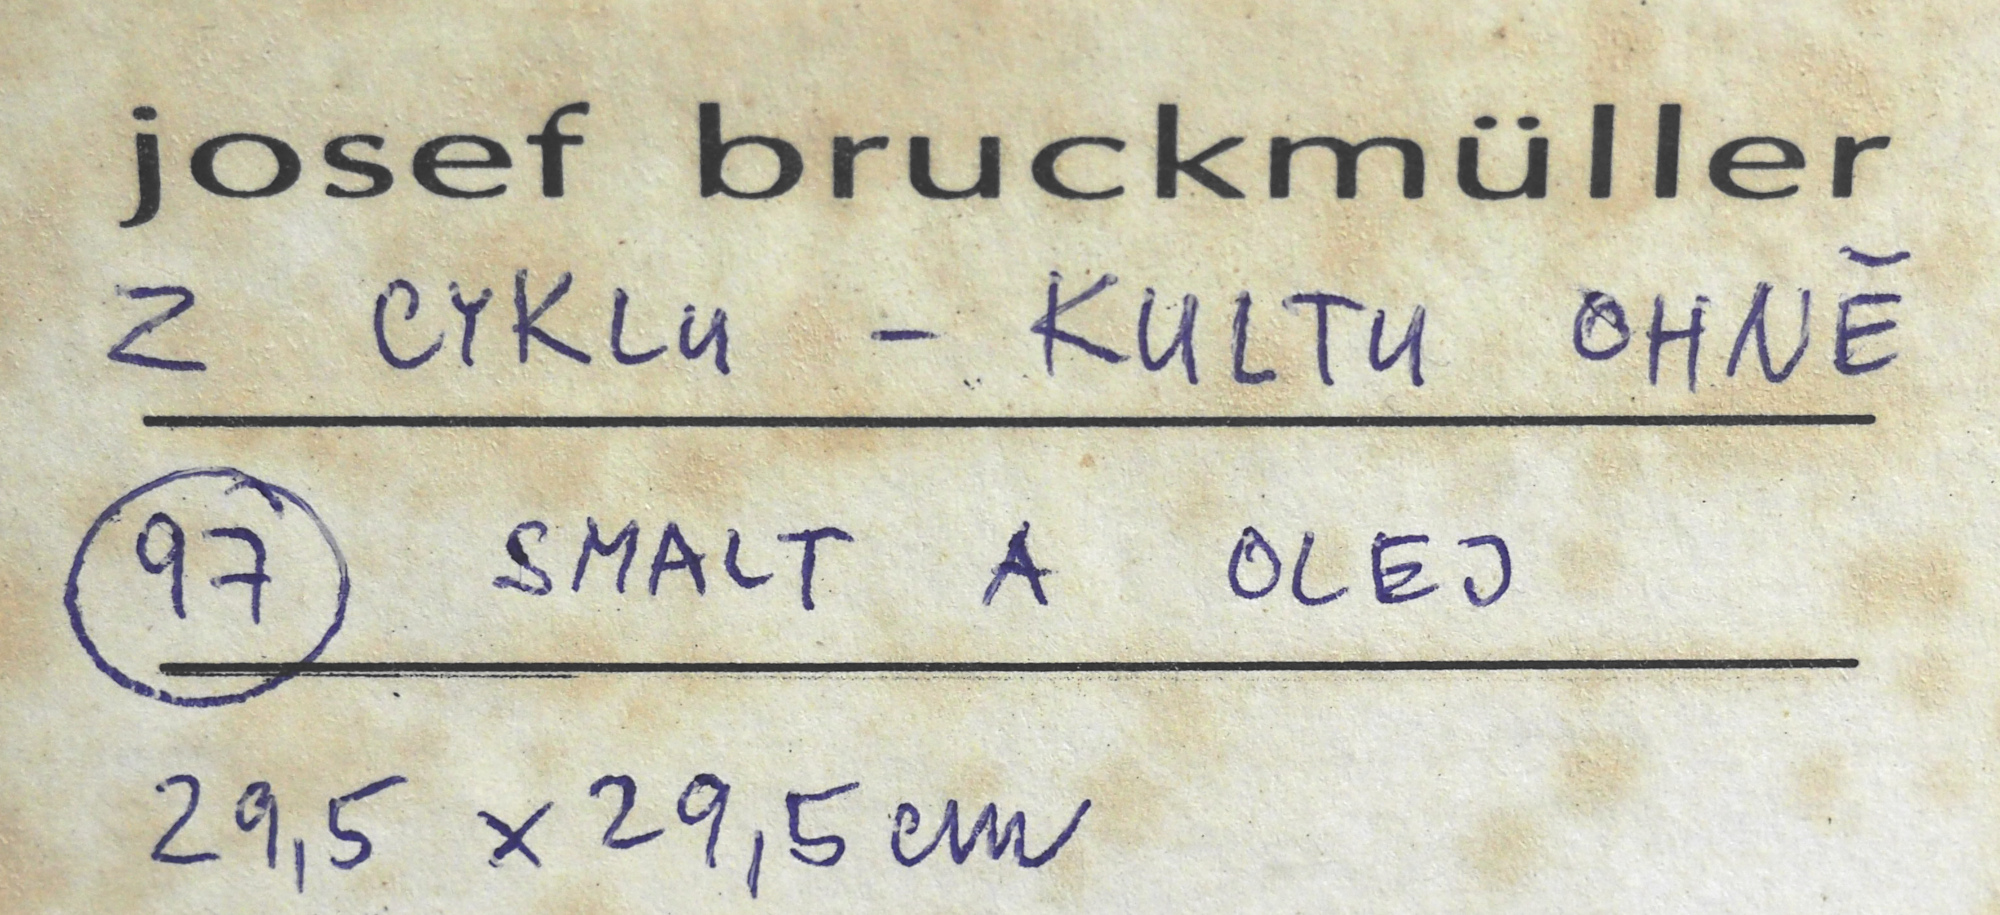 josef bruckmüller
Z CYKLU - KULTU OHNĚ
97 SMALT A OLEJ
29,5 x 29,5 cm